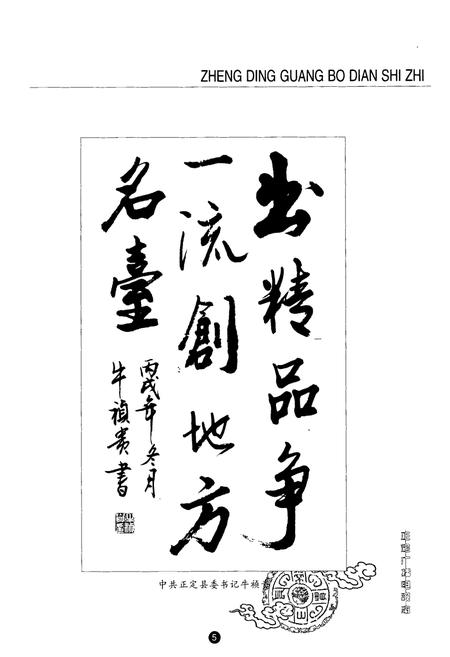 ZHENG DING GUANG BO DIAN SHI ZHI
出精品争
一流創地方
名臺
丙戌年冬月
牛禎贵書
中共正定县委书记牛祯
5